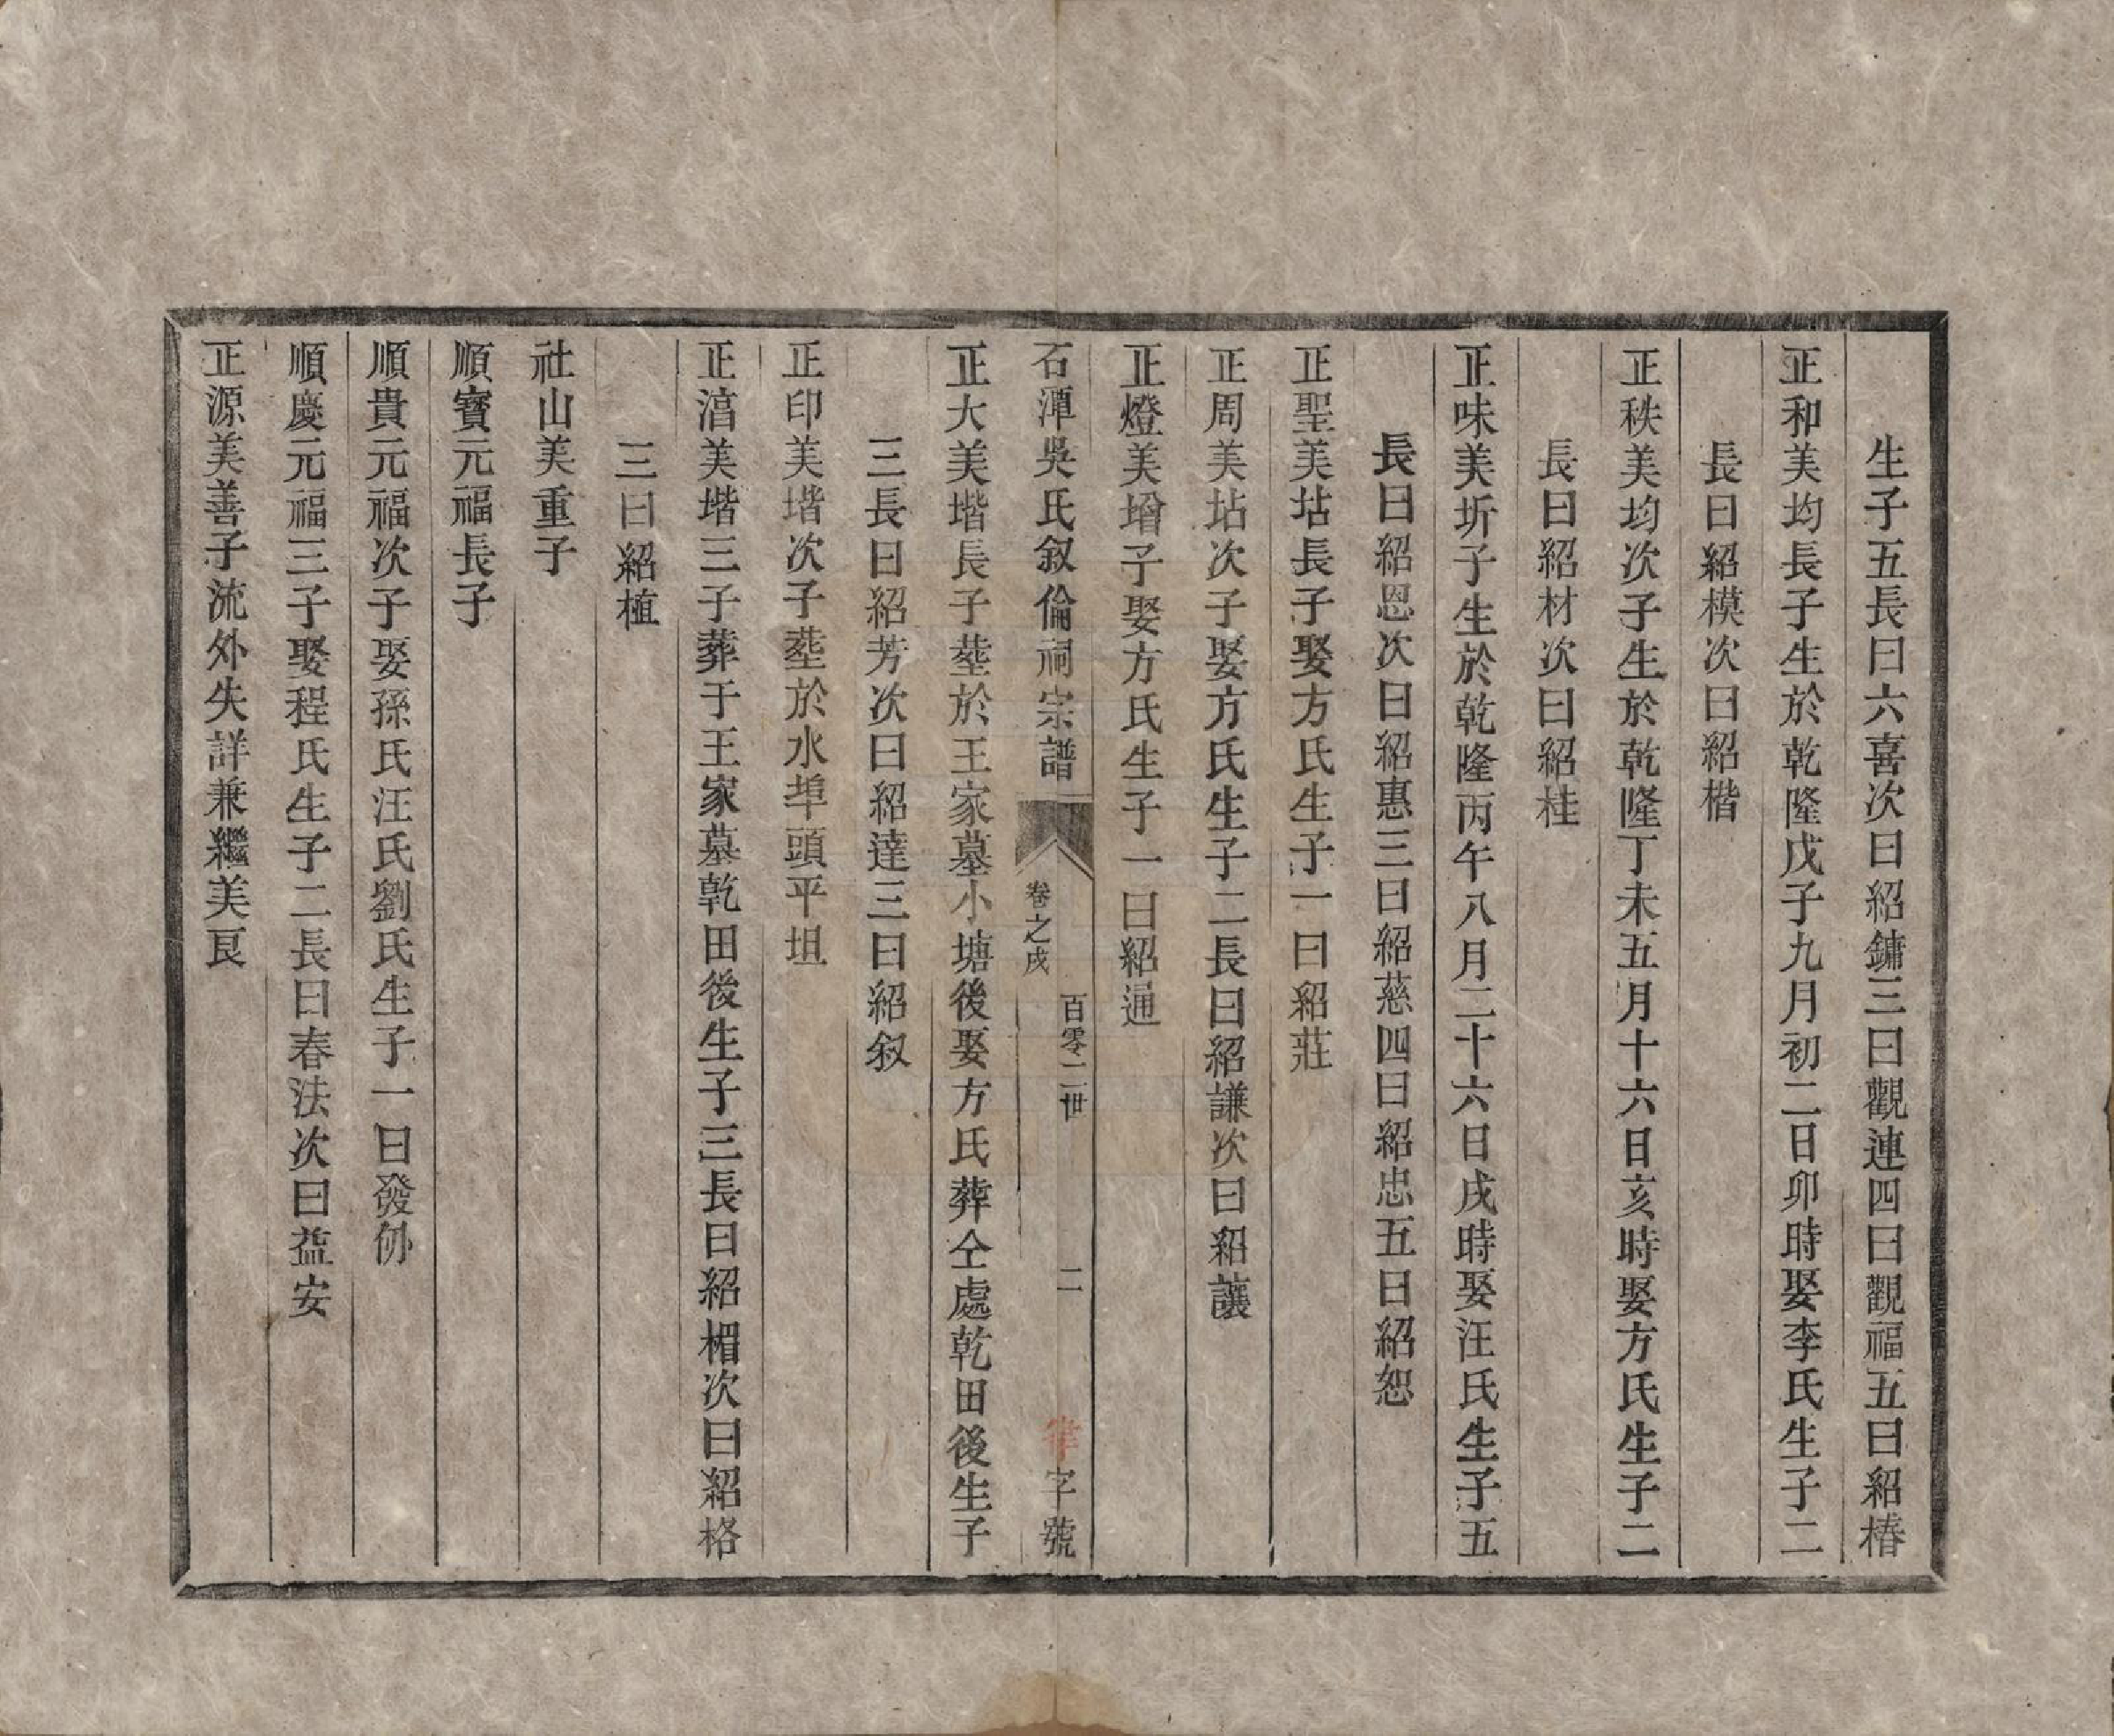 生子五長曰六喜次曰紹鏞三曰觀連四曰觀福五曰紹椿
正和美均長子生於乾隆戊子九月初二日卯時娶李氏生子二
長曰紹模次曰紹楷
正秩美均次子生於乾隆丁未五月十六日亥時娶方氏生子二
長曰紹材次曰紹桂
正味美圻子生於乾隆丙午八月二十六日戌時娶汪氏生子五
長曰紹恩次曰紹惠三曰紹慈四曰紹忠五曰紹恕
正聖美坫長子娶方氏生子一曰紹莊
正周美坫次子娶方氏生子二長曰紹謙次曰紹讓
正燈美增子娶方氏生子一曰紹通
石潭吳氏叙倫祠宗譜
卷之戌
百零二世
二
字號
正大美堦長子塟於王家墓小塘後娶方氏葬仝處乾田後生子
三長曰紹芳次曰紹達三曰紹叙
正印美堦次子塟於水埠頭平坦
正湻美堦三子葬于王家墓乾田後生子三長曰紹楣次曰紹格
三曰紹植
社山美重子
順寶元福長子
順貴元福次子娶孫氏汪氏劉氏生子一曰發
順慶元福三子娶程氏生子二長曰春法次曰益安
正源美善子流外失詳兼繼美艮